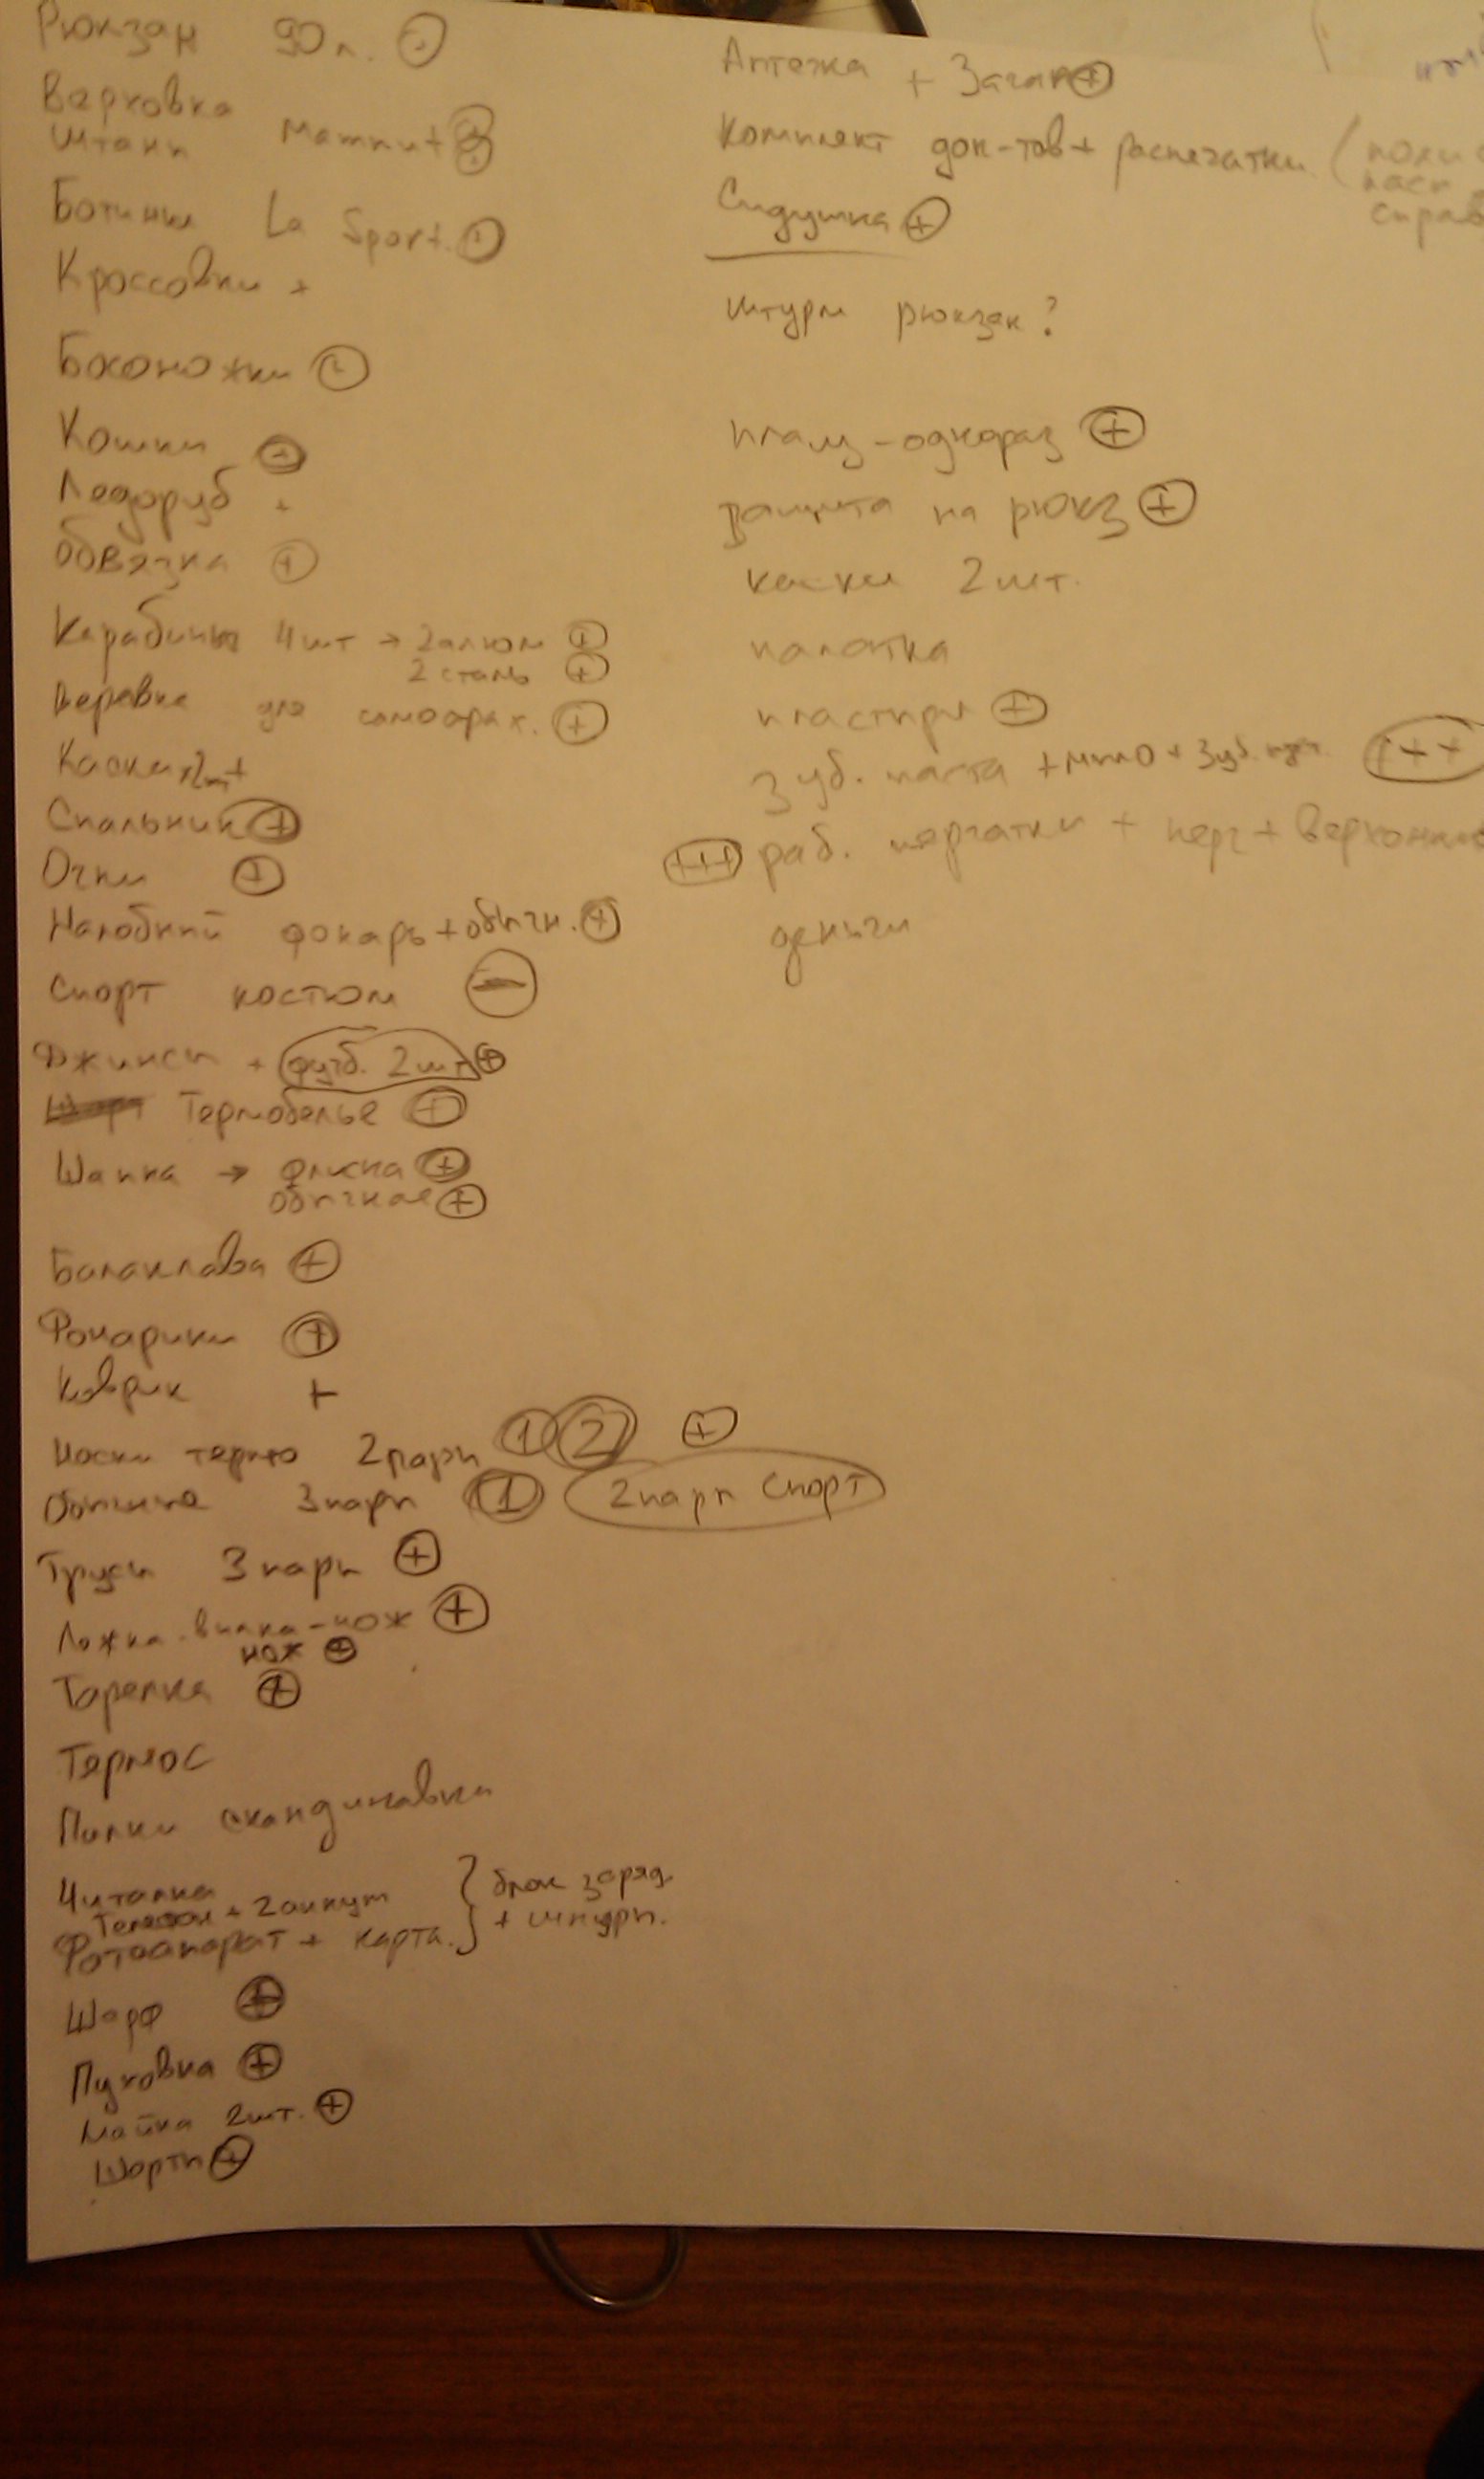 Рюкзак 90 л.
Верховка
Штаны Матпит +
Ботинки La Sport.
Кроссовки +
Босоножки
Кошки +
Ледоруб +
Обвязка +
Карабины 4 шт → 2 алюм +
2 сталь +
Веревка для самострах. +
Каски 2 шт +
Спальник +
Очки +
Налобный фонарь + обычн. +
Спорт костюм −
Джинсы + футб. 2 шт +
Термобелье +
Шапка → флиска +
обычная +
Балаклава +
Фонарики +
Коврик +
Носки термо 2 пары 1 2 +
Обычные 3 пары 1 2 пары спорт
Трусы 3 пары +
Ложка-вилка-нож +
нож +
Тарелка +
Термос
Палки скандинавки
Читалка
Телефон + 2 аккум
Фотоапарат + карта.
} блок заряд.
+ шнуры.
Шарф +
Пуховка +
Майка 2 шт. +
Шорты +
Аптечка + Загар +
Комплект док-тов + распечатки (
Сидушка +
Штурм рюкзак?
плащ-однораз +
защита на рюкз +
каски 2 шт.
палатка
пластыри +
зуб. паста + мыло + зуб. щет. +++
+++ раб. перчатки + перч + верхонки
деньги